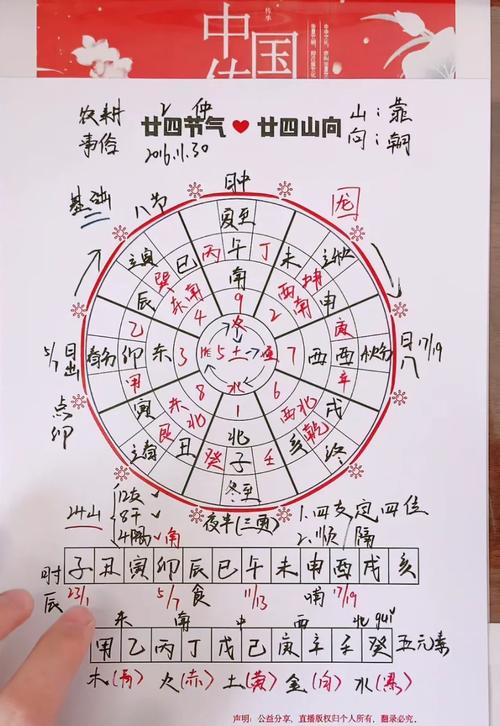 传承
中国传
农耕 2 种 山:靠
廿四节气❤廿四山向
事俗 2016.11.30 向:朝
基础 八节 日中 龙
夏至
立夏 巳 丙 午 丁 未 立秋
巽 南 坤
辰 东南 9 西南 申
乙 4 火 2 庚
5/7 日出 春分 卯 东 3 木 5 土 金 7 西 酉 秋分 日入 17/19
甲 8 水 6 辛
点卯 寅 东北 1 西北 戌
艮 北 乾
立春 丑 癸 子 壬 亥 立冬
冬至
24山 12支 夜半(三更) 1.四支定四位
8干
4隅 2.顺隔
时辰 子 丑 寅 卯 辰 巳 午 未 申 酉 戌 亥
23/1 5/7 食 11/13 晡 17/19
东 南 中 西 北 guǐ
甲 乙 丙 丁 戊 己 庚 辛 壬 癸 五元素
木(青) 火(赤) 土(黄) 金(白) 水(黑)
声明:公益分享,直播版权归个人所有,翻录必究。